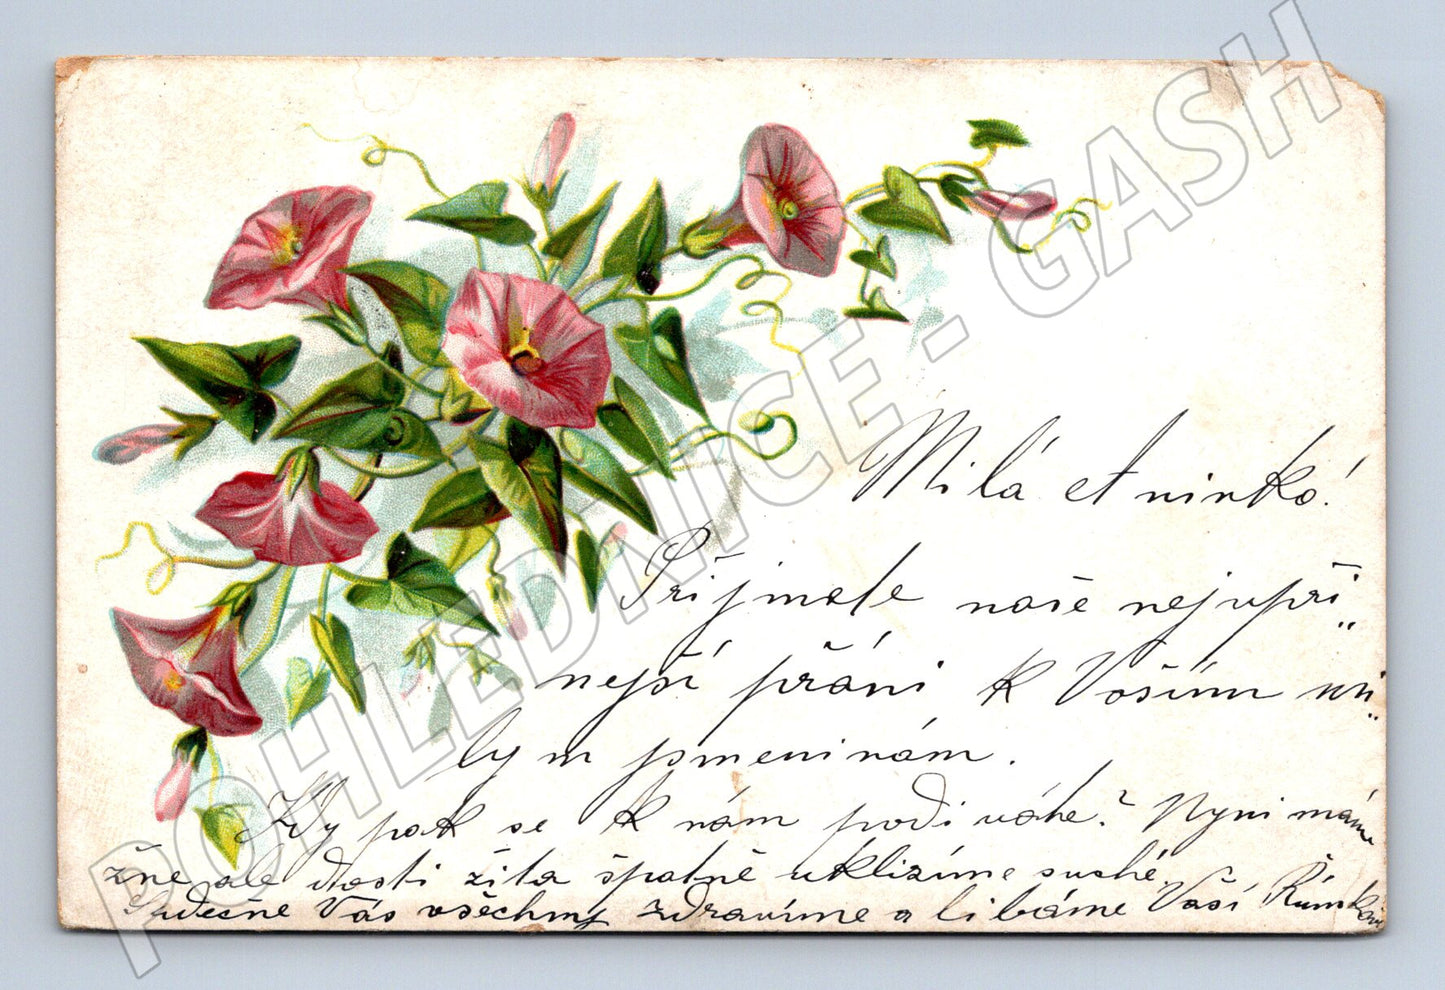 Milá etninko!
Přijmete naše nejupří„
nejší přáni k Vaším mi„
lým jmeninám.
Kdy pak se k nám podiváte? Nyni máme
žne ale dosti žita špatně uklizíme suché.
Srdečne Vás všechny zdravíme a libáme Vaší
POHLEDNICE - GASH